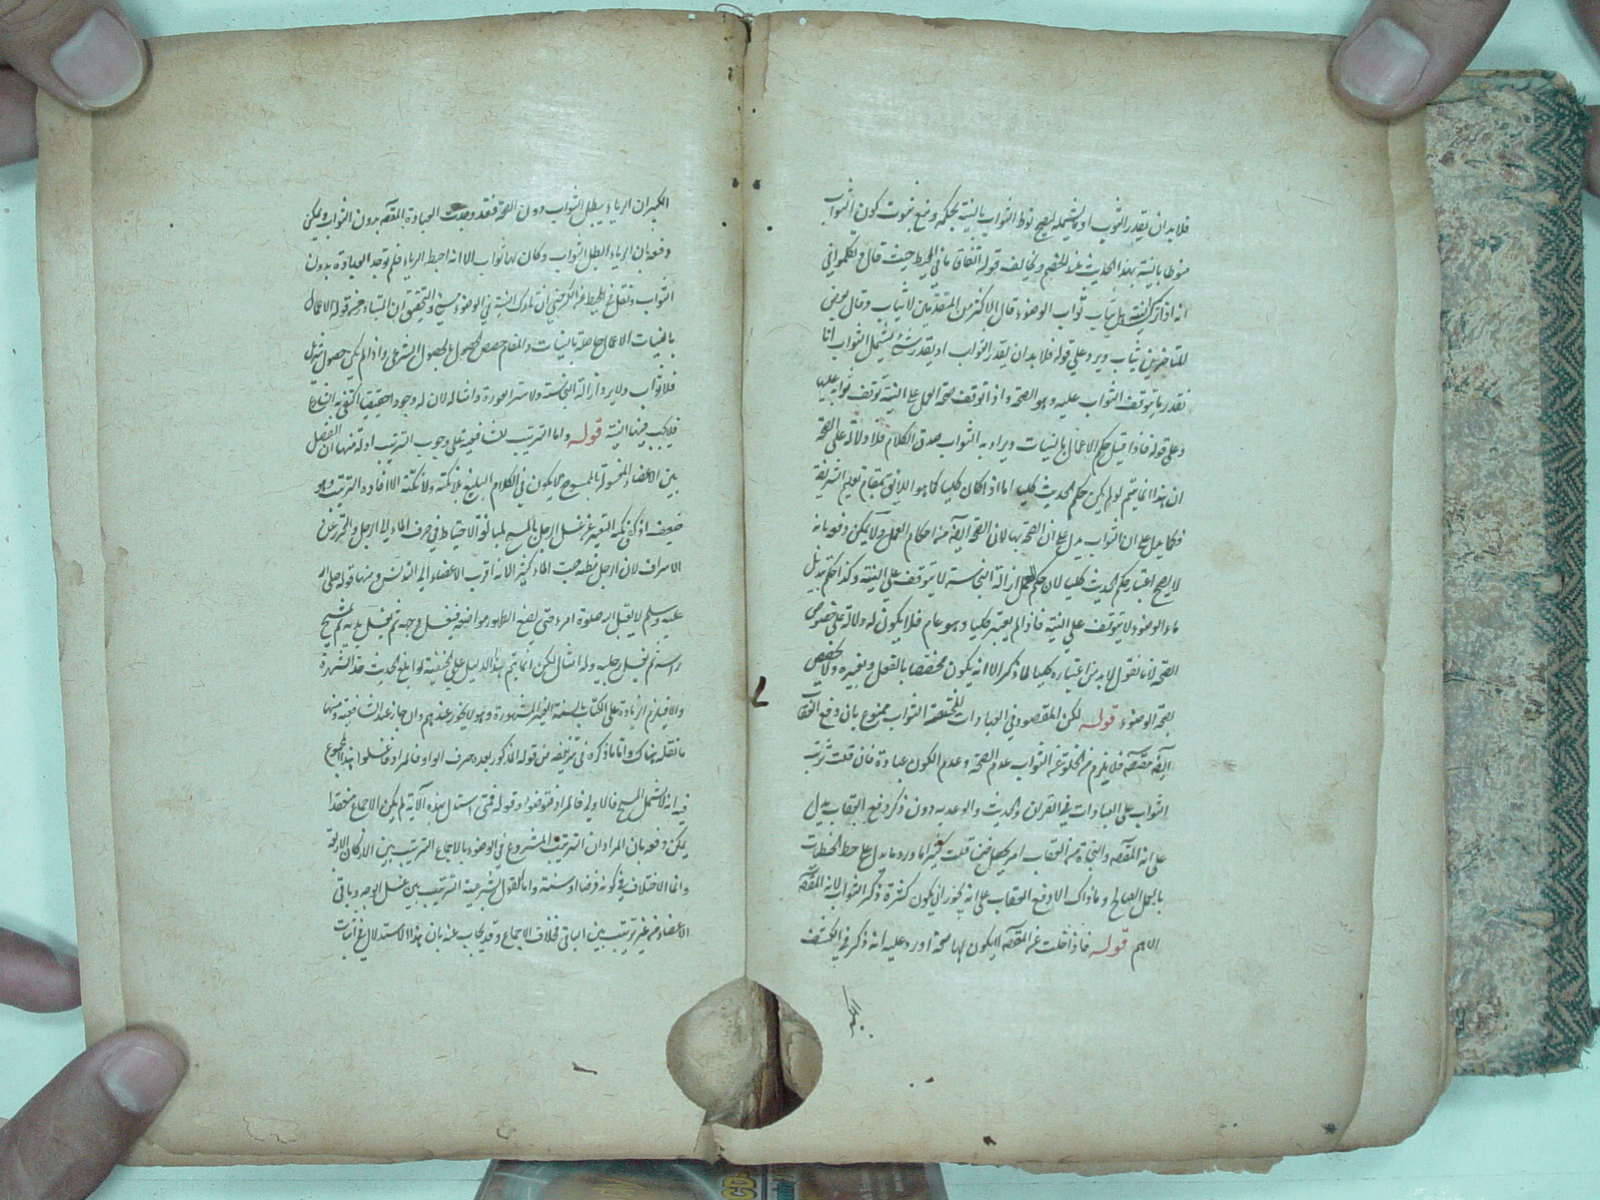 فلا بد ان يقدر الثواب او ما يشمله ليصح نوط الثواب بالنية بحكمه ومنع ثبوت كون الثواب
منوطا بالنية بهذا الحديث عند الخصم ويخالف قوله اتفاقا ما في المحيط حيث قال وتكلموا في
انه اذا ترك النية هل يثاب ثواب الوضوء قال الاكثر من المتقدمين لا يثاب وقال بعض
المتأخرين يثاب ويرد على قوله فلا بد ان يقدر الثواب او يقدر شئ يشمل الثواب انا
نقدر ما يتوقف الثواب عليه وهو الصحة واذا توقف صحة العمل على النية توقف ثوابه عليها
وعلى قوله فاذا قيل حكم الاعمال بالنيات ويراد به الثواب صدق الكلام فلا دلالة على الصحة
ان هذا انما يتم لو لم يكن حكم الحديث كليا اما اذا كان كليا كما هو اللائق بمقام تعليم الشريعة
فكما يدل على ان الثواب يدل على ان الصحة بها لان الصحة ايضا من احكام العمل ولا يمكن دفعه بانه
لا يصح اعتبار حكم الحديث كليا لان حكم العمل ازالة النجاسة لا يتوقف على النية وكذا حكم
ماء الوضوء لا يتوقف على النية فاذا لم يعتبر كليا وهو عام فلا يكون له دلالة على خصوص
الصحة لانا نقول لا بد من اعتباره كليا لما ذكر الا انه يكون مخصصا بالعقل وبغيره ولا مخصص
لصحة الوضوء قوله لكن المقصود في العبادات المختصة الثواب ممنوع بان دفع العقاب
ايضا مقصود فلا يلزم من الخلو عن الثواب عدم الصحة وعدم الكون عبادة فان قلت ترتب
الثواب على العبادات في القرآن والحديث والوعد به دون ذكر دفع العقاب يدل
على انه المقصود والنجاة من العقاب امر يحصل ضمنا قلت كثيرا ما ورد ما يدل على حط الخطيئات
بالعمل الصالح وما ذاك الا دفع العقاب على انه يجوز ان يكون كثرة ذكر الثواب لانه المقصود
الاهم قوله فاذا خلت عن المقصود لا يكون لها صحة اورد عليه انه ذكر في الكشف
الكبير ان الرياء يبطل الثواب دون الصحة فقد وجدت العبادة المقصودة بدون الثواب ويمكن
دفعه بان الرياء ابطل الثواب وكان لها ثواب الا انه احبط الرياء فلم توجد العبادة بدون
الثواب ونقل في المحيط عن الكرخي ان تارك النية في الوضوء مسئ والتحقيق ان المتبادر من قوله الاعمال
بالنيات الاعمال حاصلة بالنيات والمقام خصص الحصول بالحصول الشرعي واذا لم يكن حصول شرعي
فلا ثواب ولا يرد ازالة النجاسة ولا ستر العورة وامثاله لان له وجود حقيقيا اكتفى به الشارع
فلا يجب فيها النية قوله واما الترتيب لنا فيه على وجوب الترتيب ادلة منها ان الفصل
بين الاعضاء المغسولة بالممسوح لا يكون في الكلام البليغ بلا نكتة ولا نكتة الا افادة الترتيب وهو
ضعيف اذ نكتة التعبير عن غسل الرجل بالمسح لمبالغة الاحتياط في صرف الماء الى الرجل والتحرز عن
الاسراف لان الرجل مظنة صب الماء كثيرا لانه اقرب الاعضاء الى التدنس ومنها قوله صلى الله
عليه وسلم لا يقبل الله صلوة امرء حتى يضع الطهور مواضعه فيغسل وجهه ثم يغسل يديه ثم يمسح
رأسه ثم يغسل رجليه وله امثال لكن انما يتم هذا الدليل على الحنفية لو ابلغ الحديث حد الشهرة
والا فيلزم الزيادة على الكتاب بالسنة الغير المشهورة وهو لا يجوز عندهم وان جاز عند الشافعية ومنها
ما نقله هناك واما ما ذكره في تزييفه من قوله المذكور بعده حرف الواو فالمراد فاغسلوا هذا المجموع
فيه انه لا يشمل المسح فالاولى فالمراد فتوضؤا وقوله فمتى استدل بهذه الآية لم يكن الاجماع منعقدا
يمكن دفعه بان المراد ان الترتيب المشروع في الوضوء بالاجماع الترتيب بين الاركان الاربعة
وانما الاختلاف في كونه فرضا او سنة واما القول بشرعية الترتيب بين غسل الوجه وباقي
الاعضاء من غير ترتيب بين الباقي فخلاف الاجماع وقد يجاب عنه بان هذا الاستدلال في اثبات